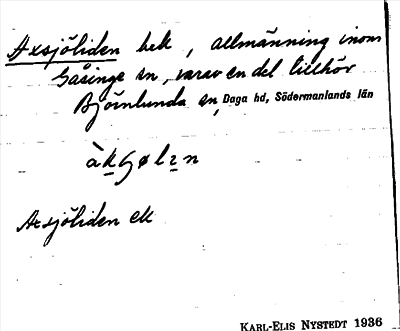 Axsjöliden bek, allmänning inom
Gåsinge sn, varav en del tillhör
Björnlunda sn, Daga hd, Södermanlands län
Axsjöliden ek
KARL-ELIS NYSTEDT 1936